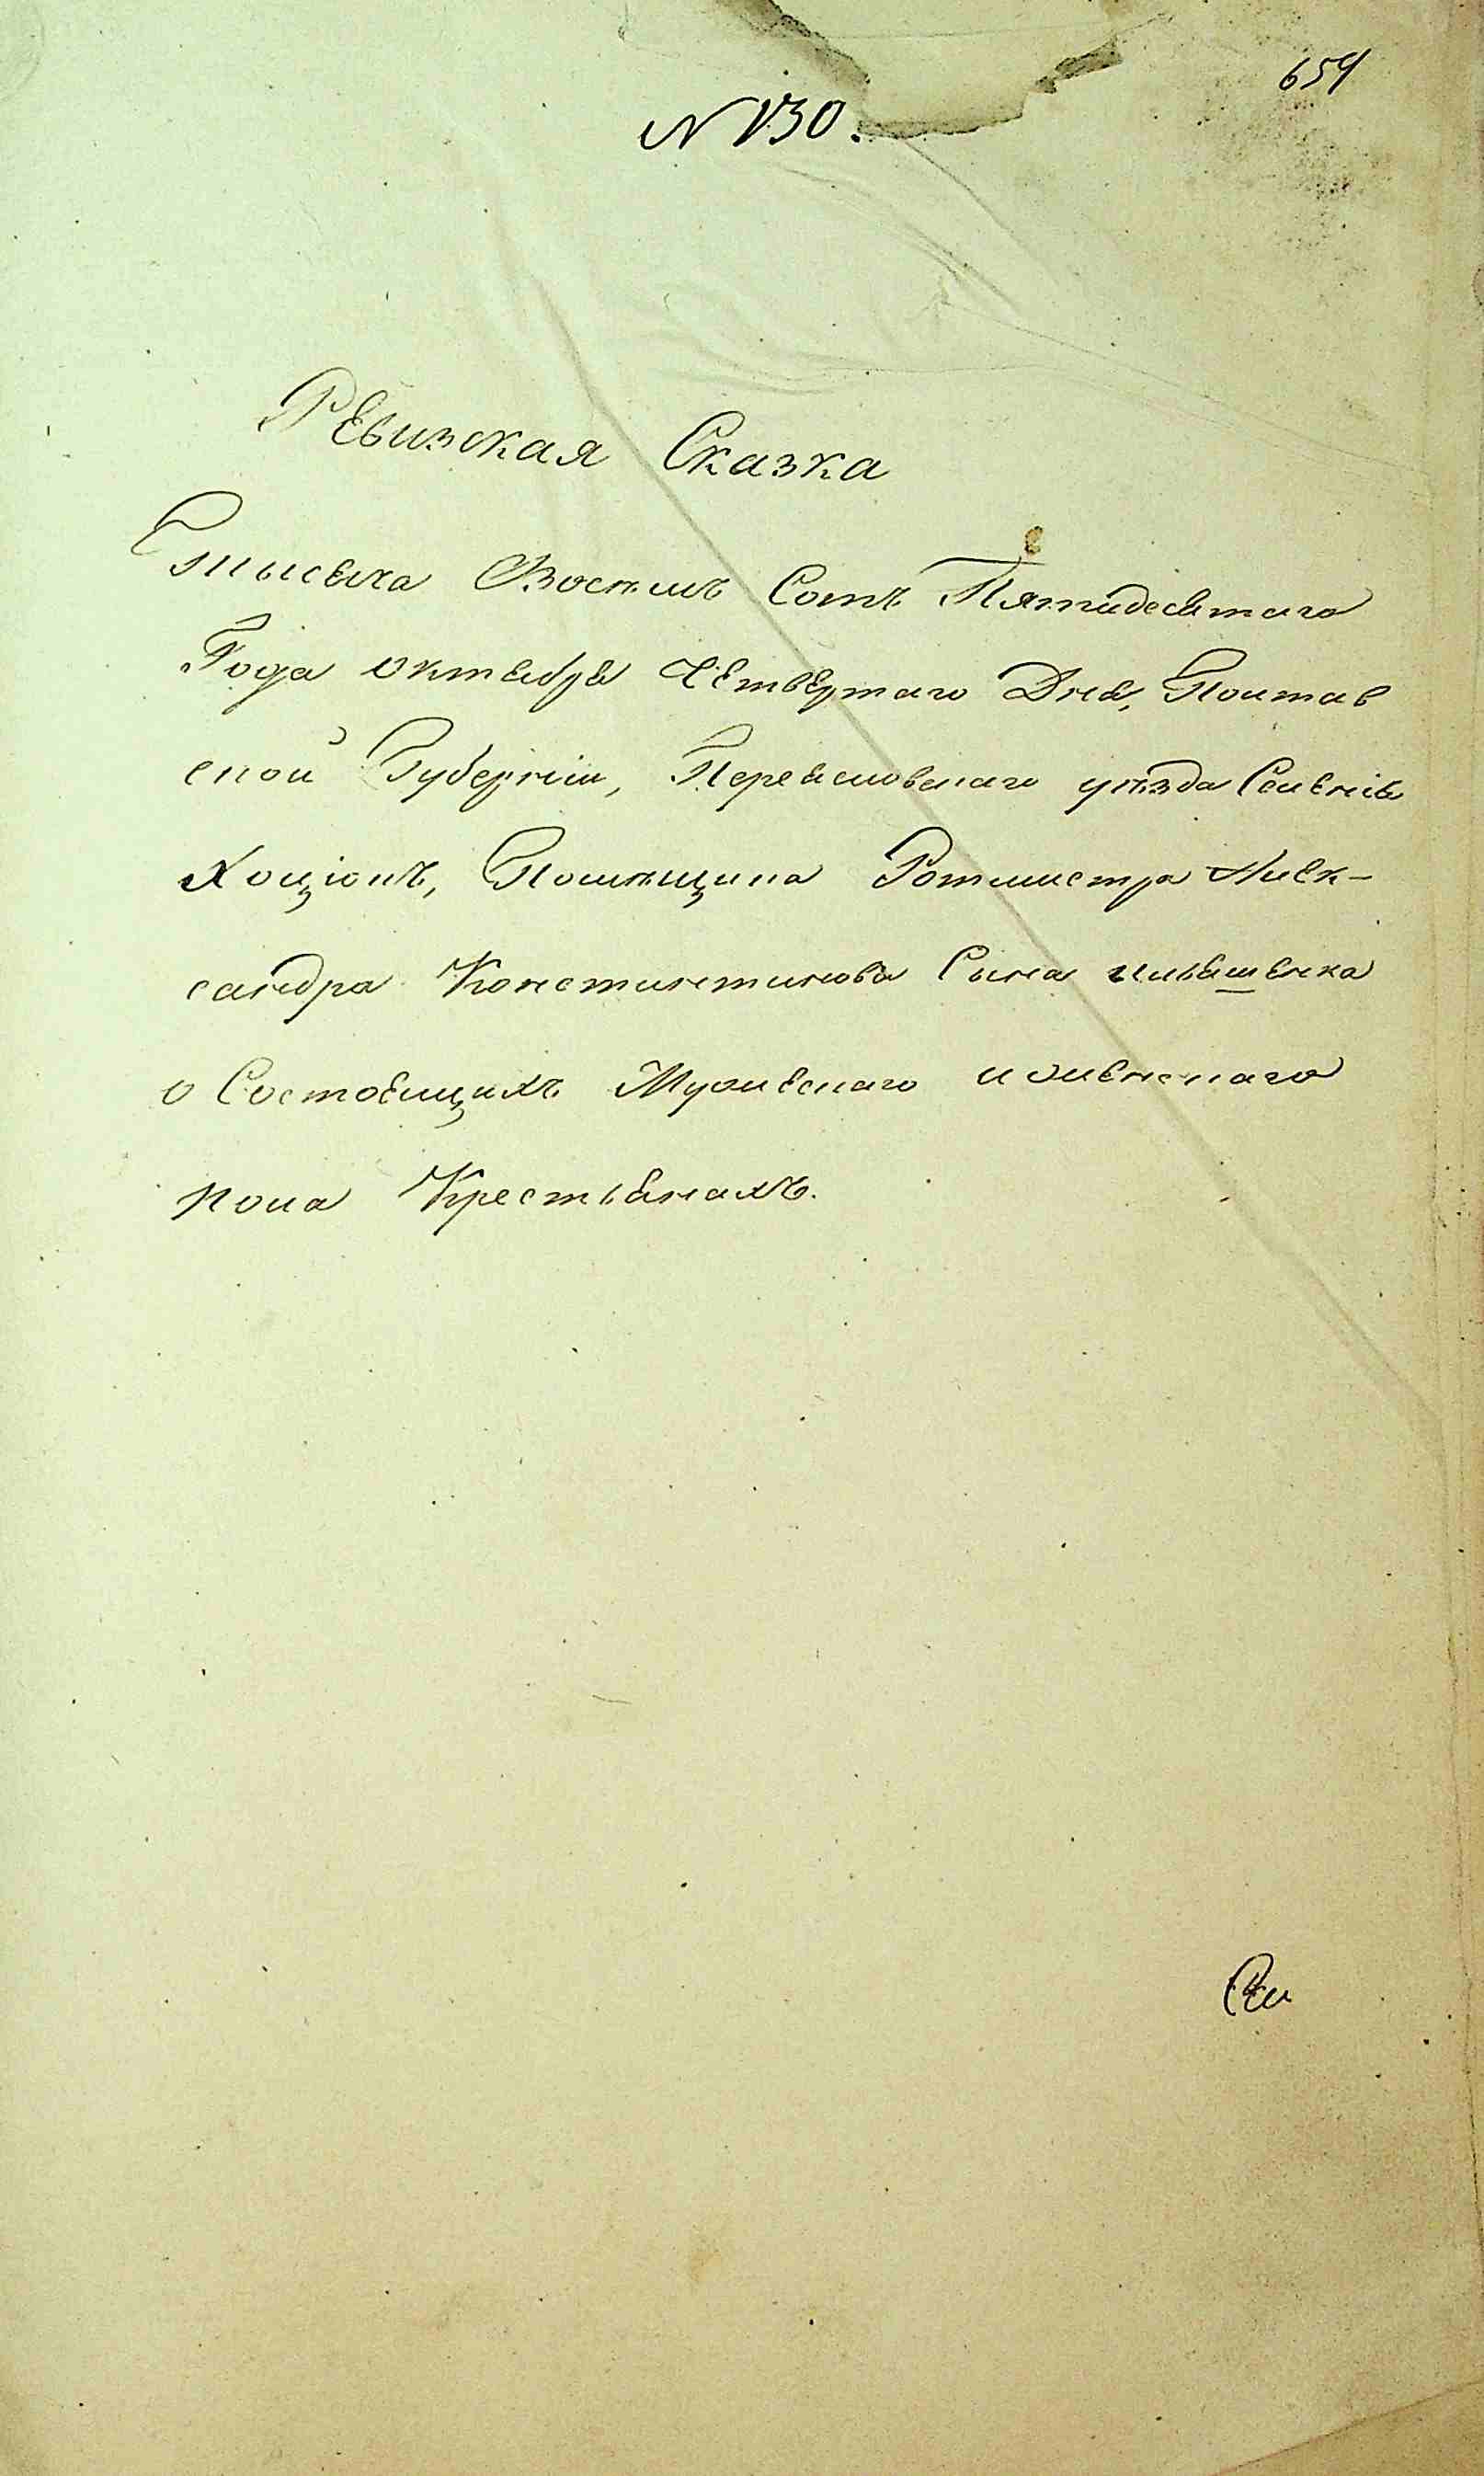 659
N 130.
Ревизская Сказка
Тысяча Восемъ Сотъ Пятидесятаго
Года октября Четвертаго Дня, Полтав
ской Губерніи, Переясловскаго уѣзда Селенія
Хоцюкъ, Помѣщика Ротмистра Алек-
сандра Константинова Сына Ильяшенка
о Состоящихъ Мужескаго и женскаго
пола Крестьянахъ.